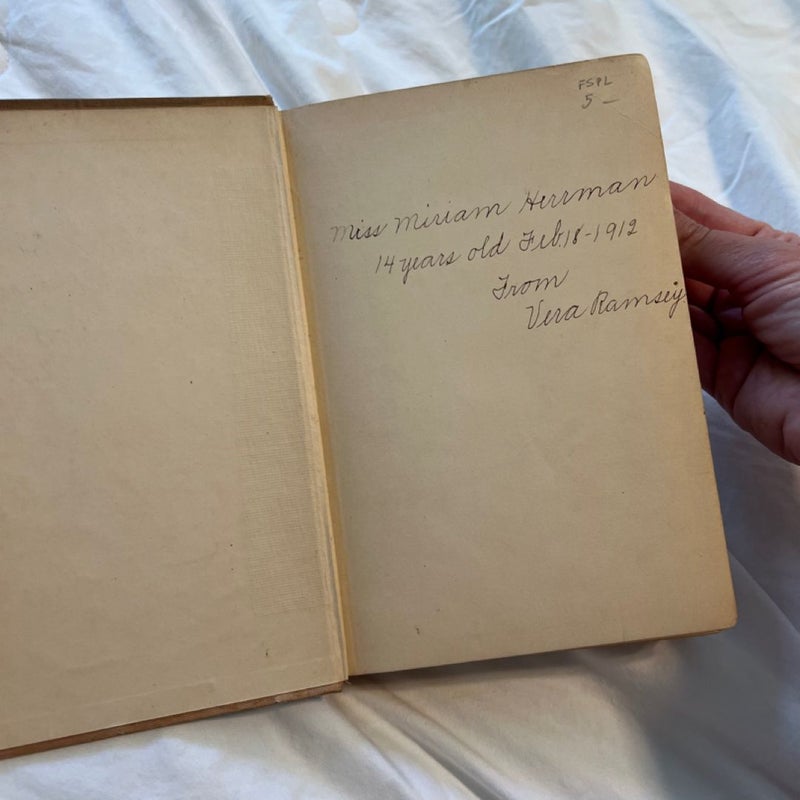 FSPL
5 —
Miss Miriam Herrman
14 years old Feb.18-1912
From
Vera Ramsey